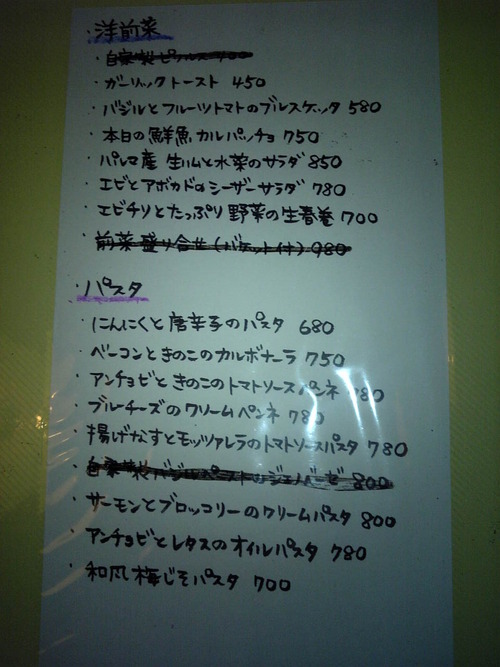 ・洋前菜
・自家製ピクルス 400
・ガーリックトースト 450
・バジルとフルーツトマトのブルスケッタ 580
・本日の鮮魚カルパッチョ 750
・パルマ産 生ハムと水菜のサラダ 850
・エビとアボカドのシーザーサラダ 780
・エビチリとたっぷり野菜の生春巻 700
・前菜盛り合せ(バケット付) 980
・パスタ
・にんにくと唐辛子のパスタ 680
・ベーコンときのこのカルボナーラ 750
・アンチョビときのこのトマトソースペンネ 780
・ブルーチーズのクリームペンネ 780
・揚げなすとモッツァレラのトマトソースパスタ 780
・自家製バジルペーストのジェノベーゼ 800
・サーモンとブロッコリーのクリームパスタ 800
・アンチョビとレタスのオイルパスタ 780
・和風梅じそパスタ 700